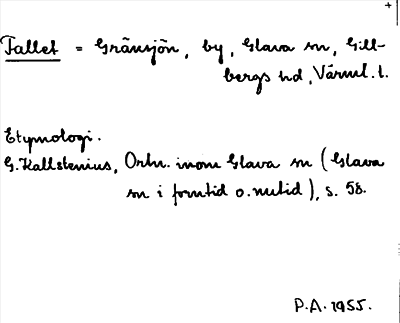 +
Fallet = Gränsjön, by, Glava sn, Gill-
bergs hd, Värml. l.
Etymologi.
G. Kallstenius, Ortn. inom Glava sn (Glava
sn i forntid o. nutid), s. 58.
P.A. 1955.